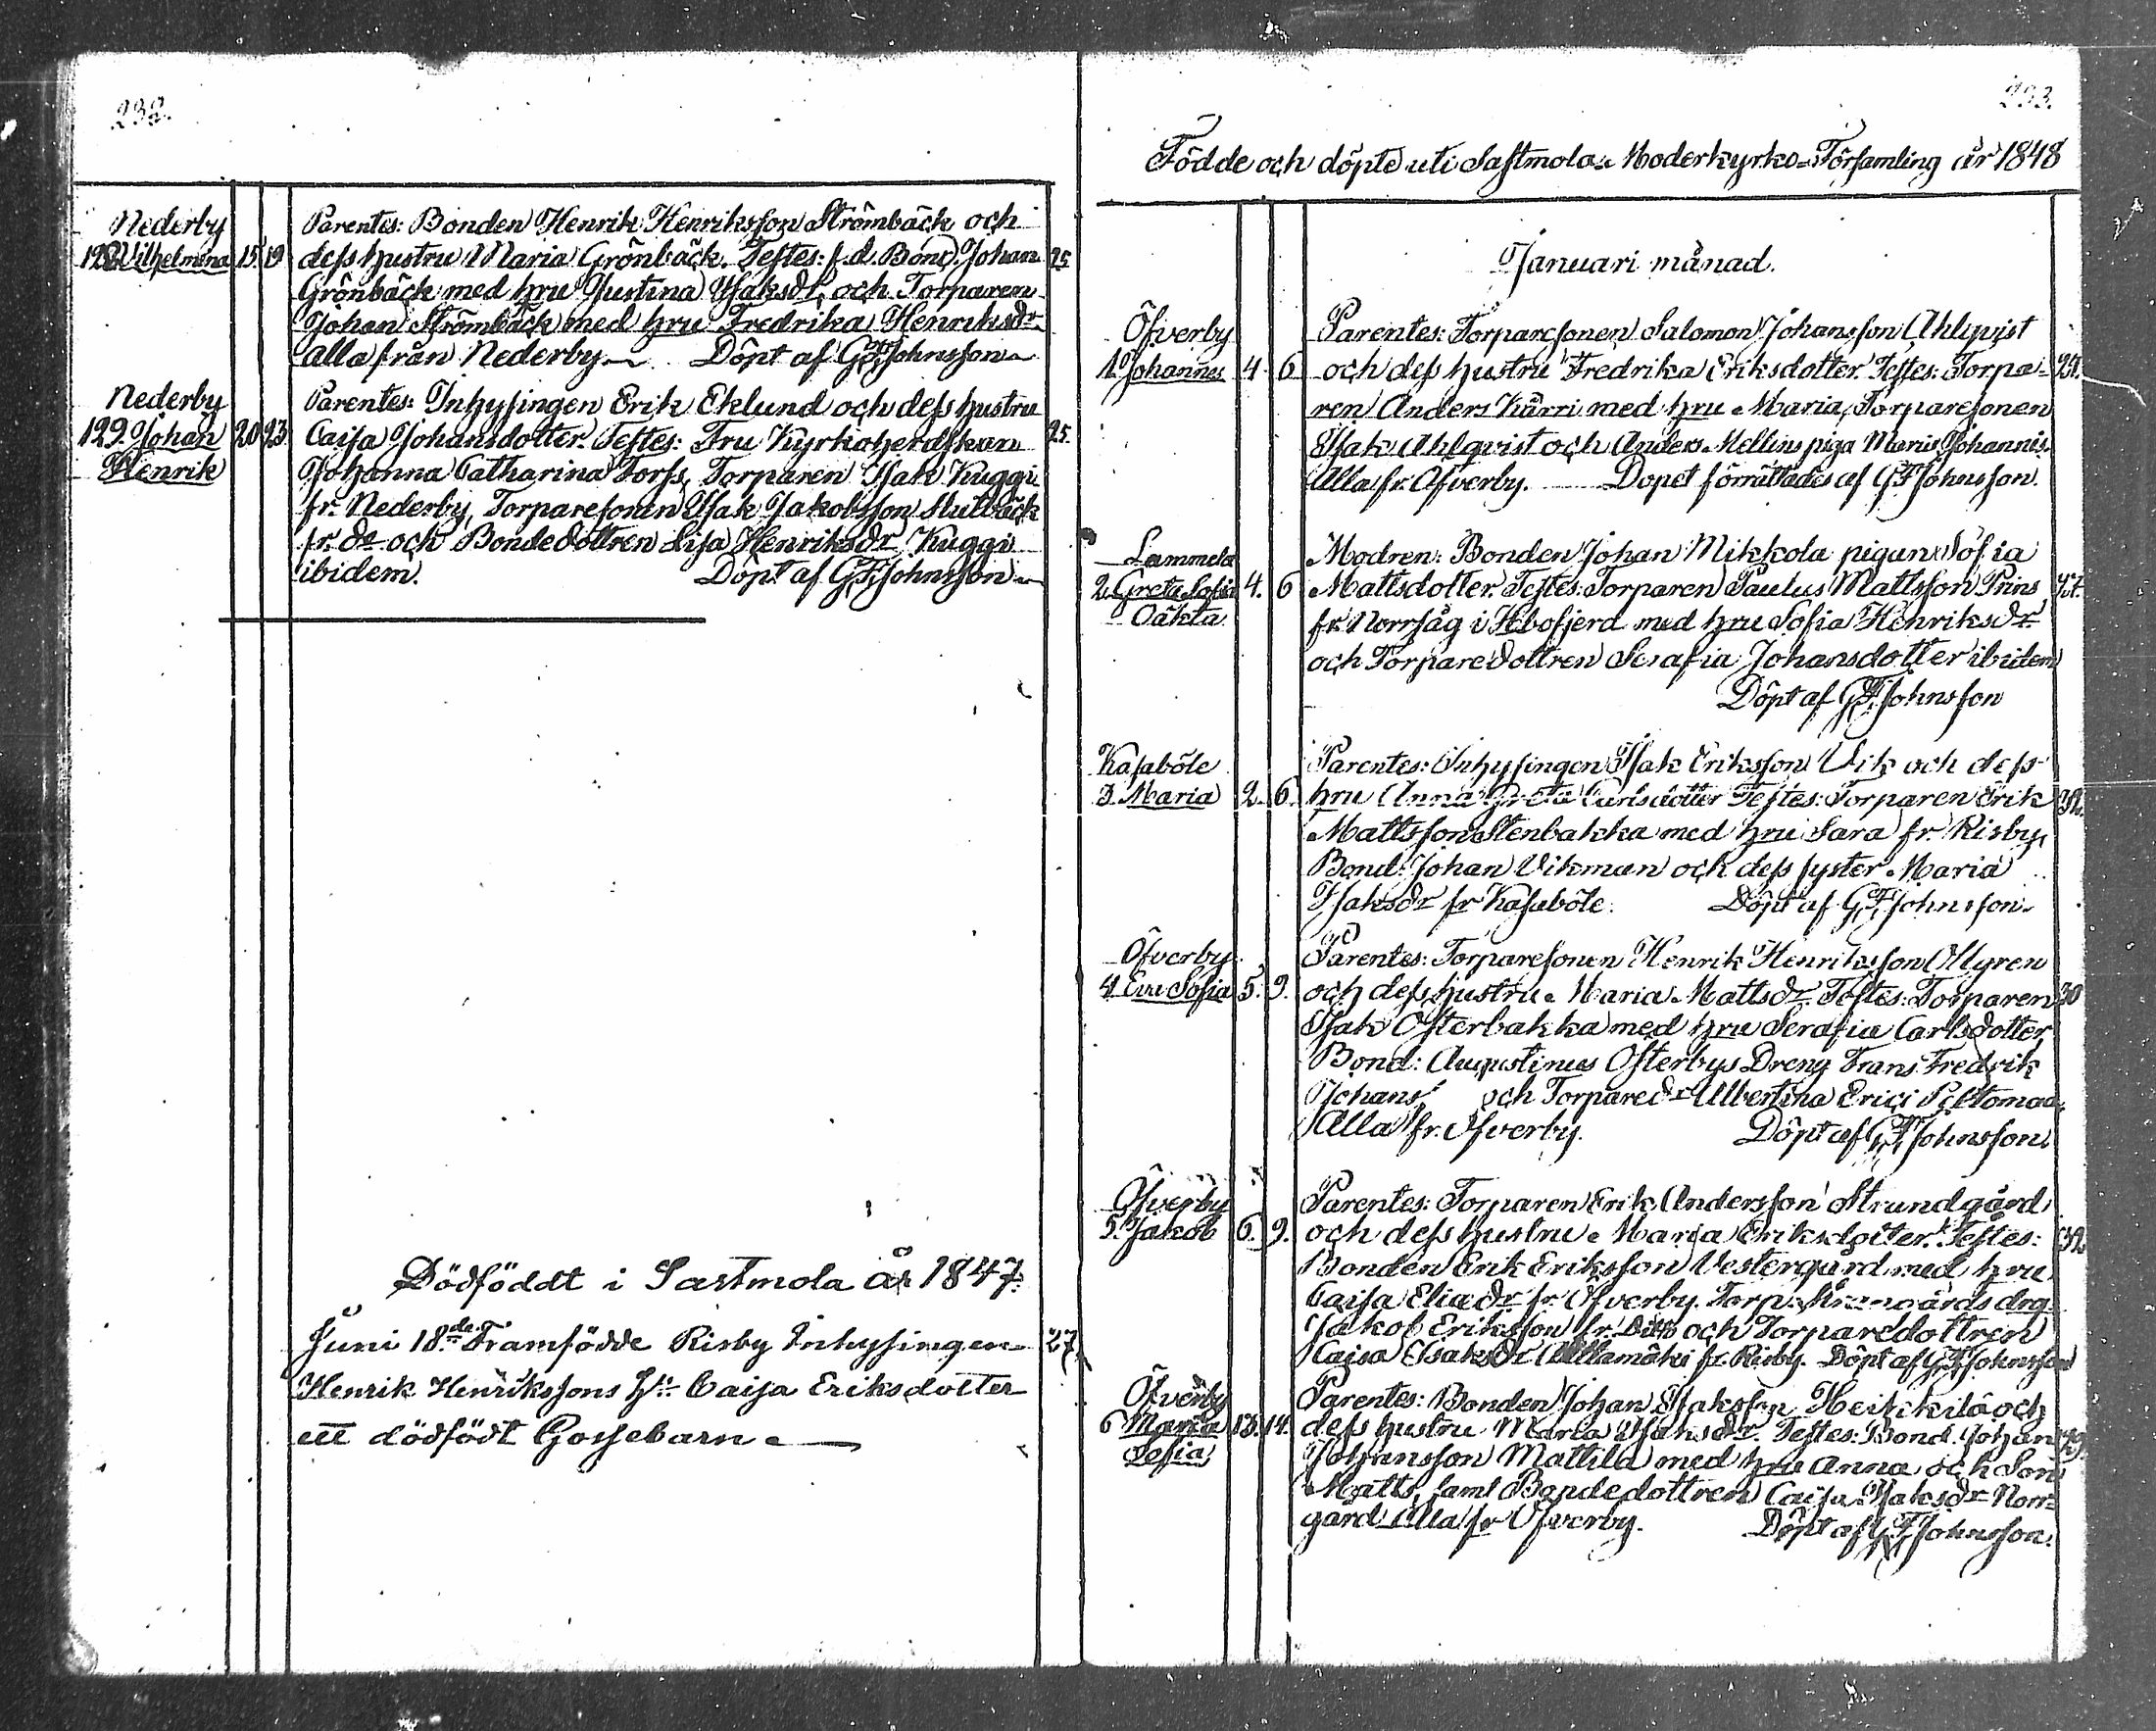 232.
Nederby
128 Vilhelmina 15. 19
Parentes: Bonden Henrik Henriksson Strömbäck och
dess hustru Maria Grönbäck. Testes: f.d. Bond. Johan 25
Grönbäck med hru Justina Isaksdr, och Torparen
Johan Strömbäck med hru Fredrika Henriksdr
alla från Nederby. Döpt af G.F. Johnsson
Nederby
129. Johan 20 23.
Henrik
Parentes: Inhysingen Erik Eklund och dess hustru
Caisa Johansdotter. Testes: Fru Kyrkoherdskan 25.
Johanna Catharina Forss, Torparen Isak Kuggi
fr. Nederby, Torparesonen Isak Jakobsson
fr. do och Bondedottren Lisa Henriksdr Kuggi
ibidem. Döpt af G.F. Johnsson
Dödföddt i Sastmola år 1847.
Juni 18de Framfödde Risby Inhysingen 27
Henrik Henrikssons Hu Caisa Eriksdotter
ett dödfödt Gossebarn.
233.
Födde och döpte uti Sastmola Moderkyrko-Församling år 1848
Januari månad.
Öfverby
1. Johannes 4. 6
Parentes: Torparesonen Salomon Johansson Ahlqvist
och dess hustru Fredrika Eriksdotter. Testes: Torpa-
ren Anders Kärri med hru Maria, Torparesonen
Isak Ahlqvist och Anders Mellins piga Maria Johannis.
Alla fr. Öfverby. Dopet förrättades af G.F. Johnsson.
Lammela
2. Greta Sofia 4. 6
Oäkta
Modren: Bonden Johan Mikkola pigan Sofia
Mattsdotter. Testes: Torparen Paulus Mattsson Prins
fr. Norrsåg i Hbofjerd med hru Sofia Henriksdr
och Torparedottren Serafia Johansdotter ibidem
Döpt af G.F. Johnsson
Kasaböle
3. Maria 2. 6.
Parentes: Inhysingen Isak Eriksson Vik och dess
hru Anna Greta Carlsdotter Testes: Torparen Erik
Mattsson Stenbakka med hru Sara fr. Risby,
Bond. Johan Vikman och dess syster Maria
Isaksdr fr Kasaböle. Döpt af G.F. Johnsson.
Öfverby
4 Eva Sofia 5. 9.
Parentes: Torparesonen Henrik Henriksson Myren
och dess hustru Maria Mattsdr. Testes: Torparen 30
Isak Österbakka med hru Serafia Carlsdotter,
Bond: Augustinus Österbys Dreng Frans Fredrik
Johans. och Torparedr Albertina Erici
Alla fr. Öfverby. Döpt af G.F. Johnsson.
Öfverby
5. Jakob 6. 9.
Parentes: Torparen Erik Andersson Strundgård
och dess hustru Maria Eriksdotter. Testes:
Bonden Erik Eriksson Vestergård med hru
Caisa Eliædr fr. Öfverby. Torp. drg.
Jakob Eriksson fr. Ditto och Torparedottren
Caisa Isaksdr Allamäki fr. Risby. Döpt af G.F. Johnsson
Öfverby
6 Maria 13. 14.
Sofia
Parentes: Bonden Johan Isaksson Heikkilä och
dess hustru Maria Isaksdr. Testes: Bond. Johan
Johansson Mattila med hru Anna och Son
Matts, samt Bondedottren Caisa Isaksdr Norr-
gård Alla fr Öfverby. Döpt af G.F. Johnsson.